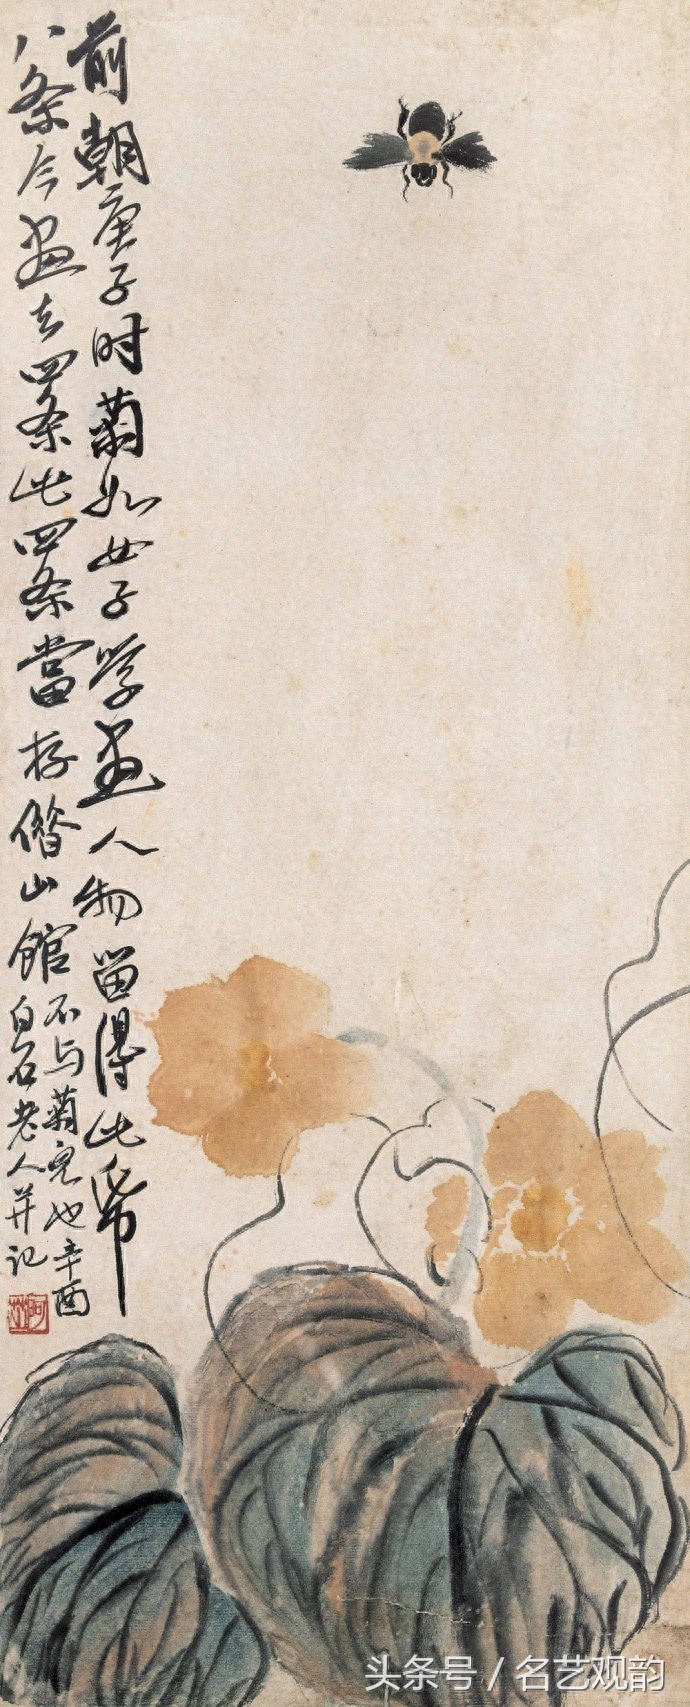 前朝庚子时菊如女子学画人物留得此帋
八条今画去四条此四条當存借山館
不与菊児也辛酉
白石老人并记
头条号／名艺观韵